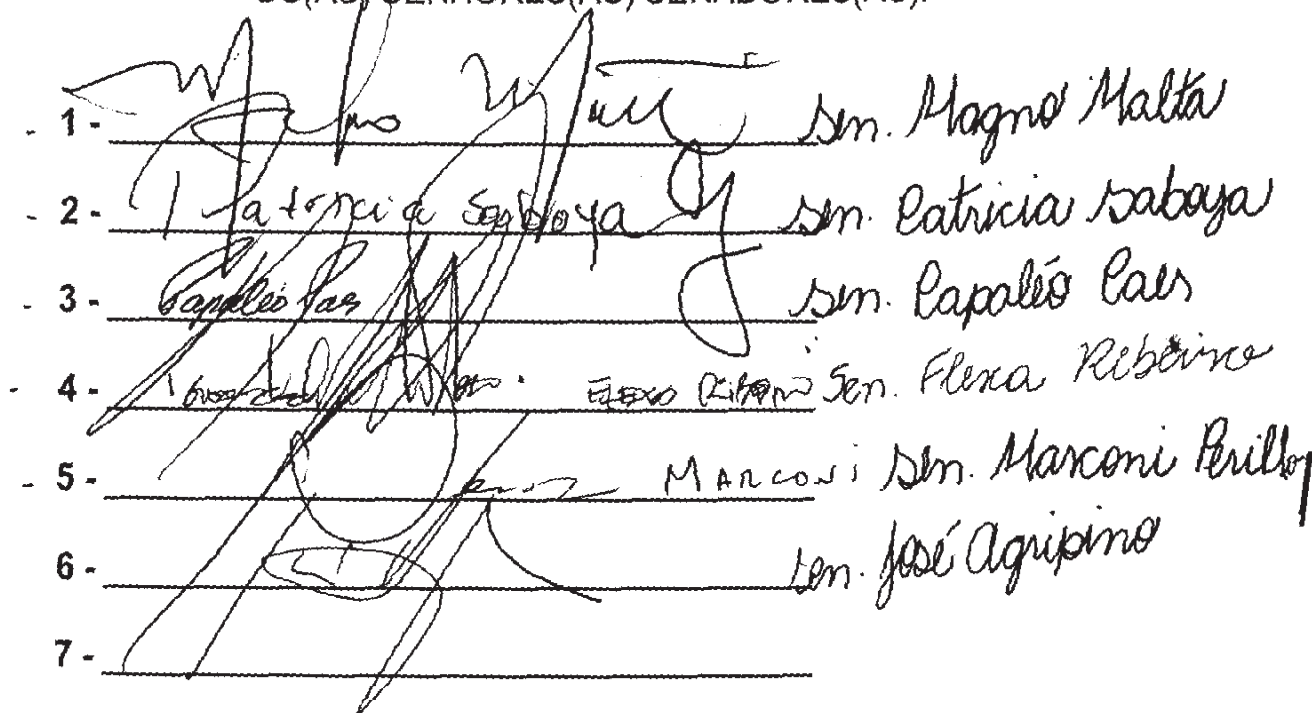 DO(AS) SENHORES(AS) SENADORES(AS).
- 1 - sen. Magno Malta
- 2 - Patrícia Saboya sen. Patricia Saboya
- 3 - Papaléo Paes sen. Papaléo Paes
- 4 - Flexa Ribeiro Sen. Flexa Ribeiro
- 5 - MARCONI sen. Marconi Perillo
6 - sen. José Agripino
7 -